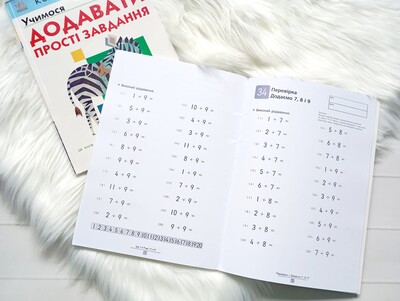 Учимося
ДОДАВАТИ
ПРОСТІ ЗАВДАННЯ
1 + 9 =
5 + 9 =
3 + 9 =
11 + 9 =
8 + 9 =
6 + 9 =
4 + 9 =
9 + 9 =
7 + 9 =
2 + 9 =
10 + 9 =
4 + 9 =
9 + 9 =
6 + 9 =
3 + 9 =
11 + 9 =
1 + 9 =
7 + 9 =
2 + 9 =
9 + 9 =
1 2 3 4 5 6 7 8 9 10 11 12 13 14 15 16 17 18 19 20
34
Перевірка
Додаємо 7, 8 і 9
1 + 7 =
2 + 7 =
3 + 7 =
4 + 7 =
6 + 7 =
7 + 7 =
1 + 8 =
2 + 8 =
3 + 8 =
4 + 8 =
5 + 8 =
7 + 8 =
8 + 8 =
1 + 9 =
2 + 9 =
3 + 9 =
4 + 9 =
5 + 9 =
6 + 9 =
7 + 9 =